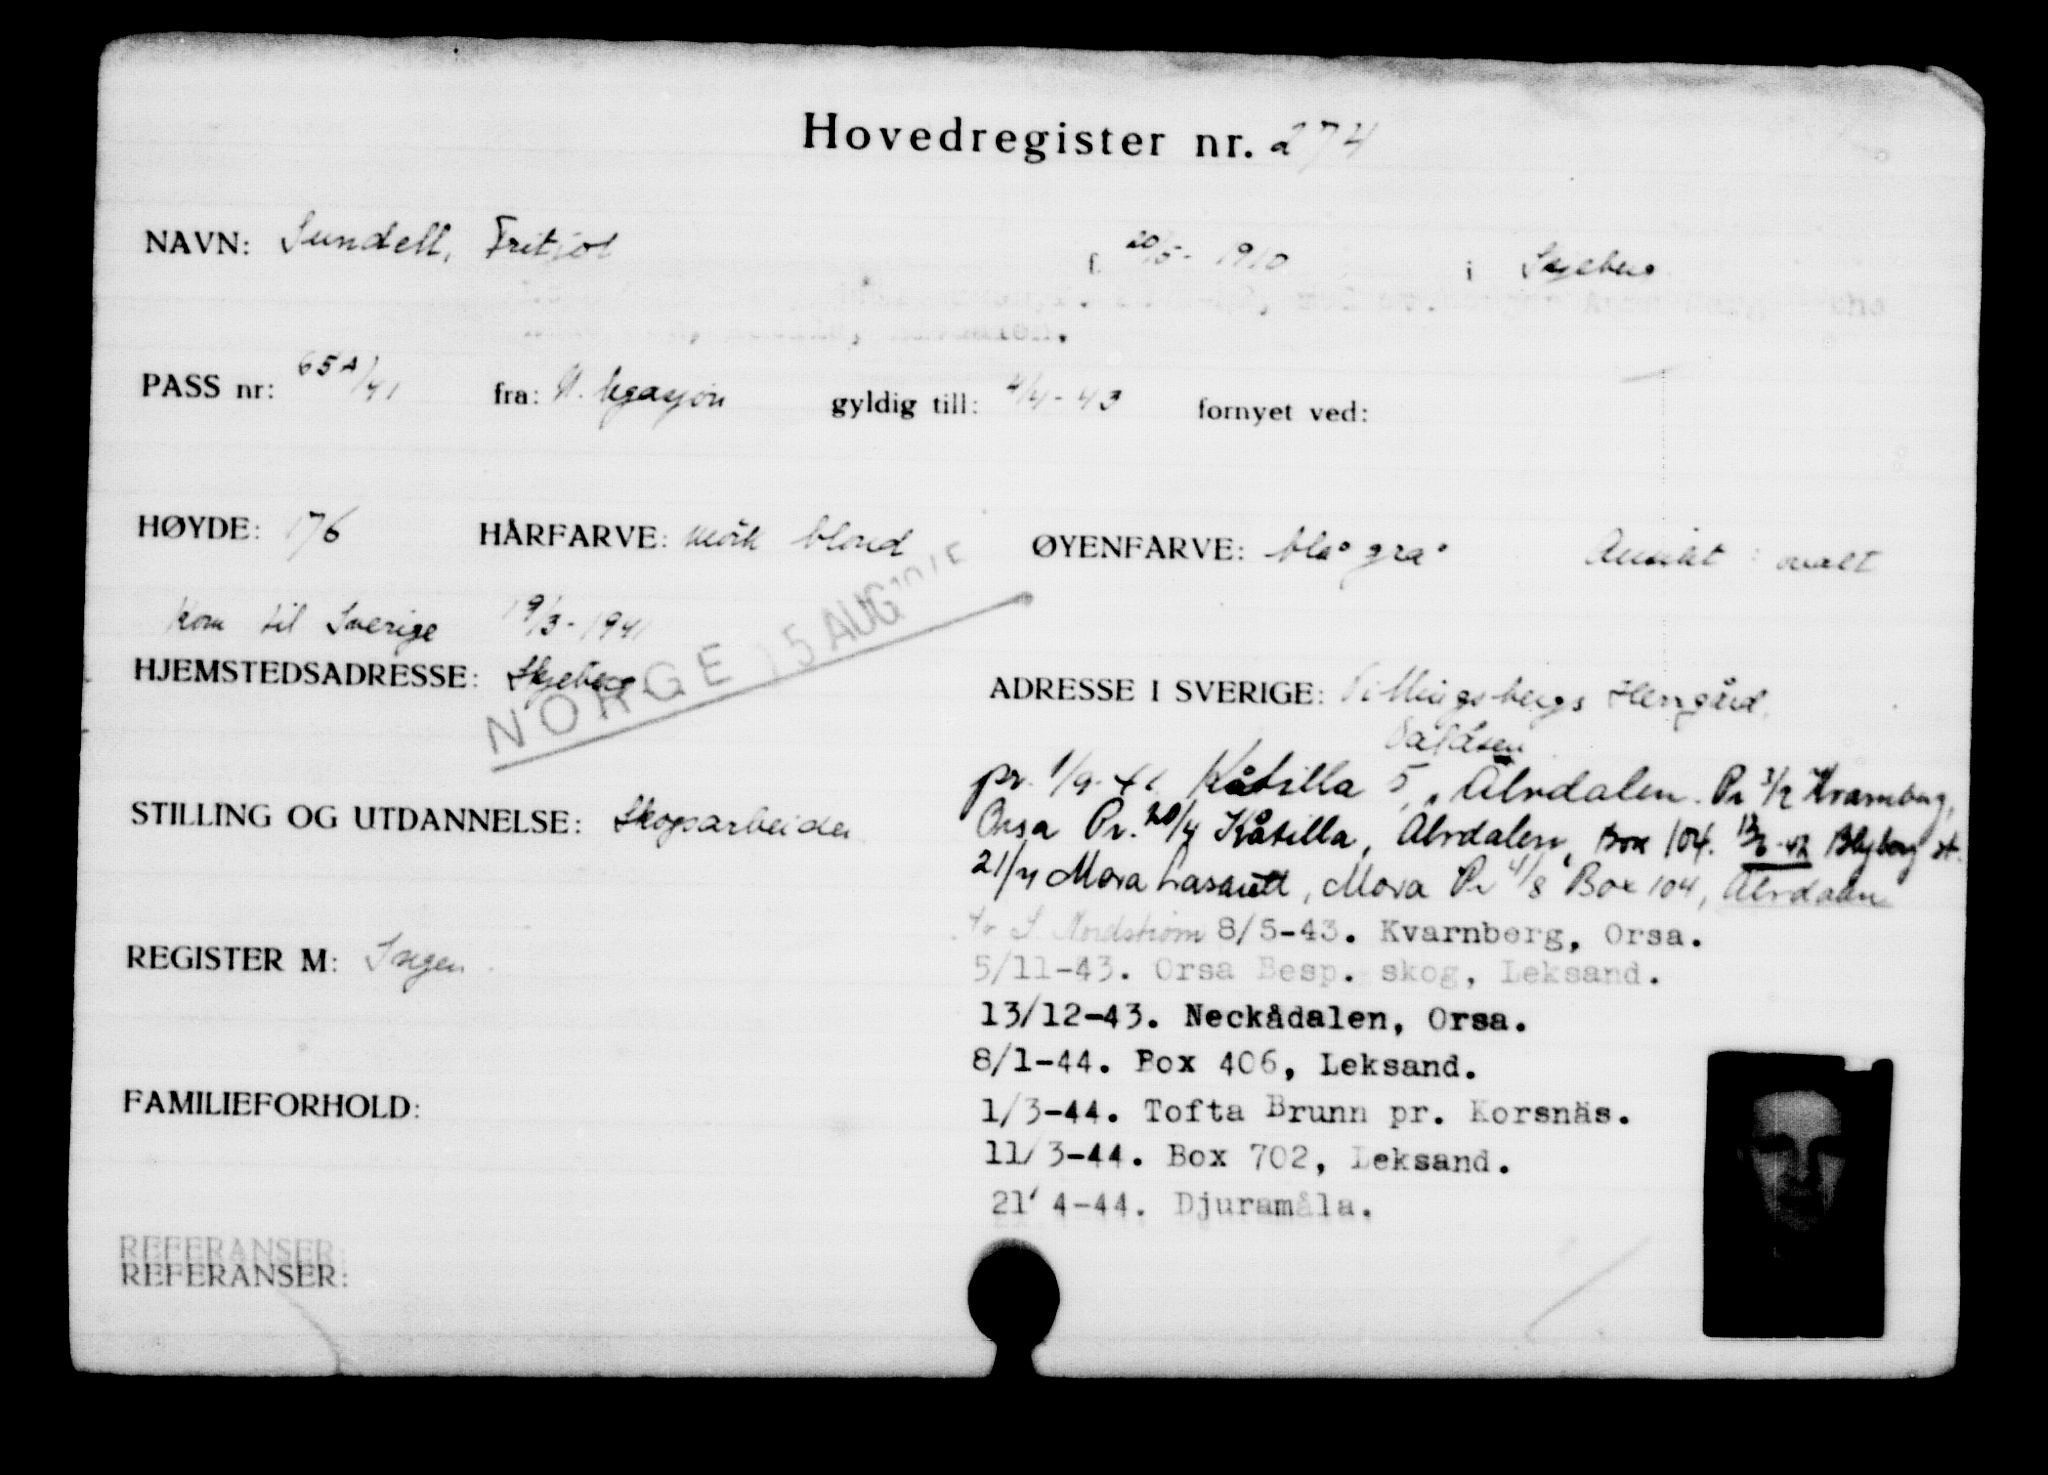 Hovedregister nr. 274
NAVN: Sundell, Fritjof f. 20/5-1910 i Skjeberg
PASS nr: 65A/41 fra: N. legasjon gyldig till: 4/4-43 fornyet ved:
HØYDE: 176 HÅRFARVE: mörk blond ØYENFARVE: blå grå Ansikt: ovalt
Kom til Sverige 19/3-1941
NORGE 15 AUG
HJEMSTEDSADRESSE: Skjeberg ADRESSE I SVERIGE: Herrgård,
pr. 1/9-41 Kåtilla 5, Älvdalen. Pr 3/2 Kvarnberg,
STILLING OG UTDANNELSE: Skogsarbeider Orsa Pr. 20/4 Kåtilla, Älvdalen, Box 104. Blyberg st.
21/7 Mora Lasarett, Mora Pr 4/8 Box 104, Älvdalen
S. Nordström 8/5-43. Kvarnberg, Orsa.
REGISTER M: Ingen. 5/11-43. Orsa Besp. skog, Leksand.
13/12-43. Neckådalen, Orsa.
8/1-44. Box 406, Leksand.
FAMILIEFORHOLD: 1/3-44. Tofta Brunn pr. Korsnäs.
11/3-44. Box 702, Leksand.
21/4-44. Djuramåla.
REFERANSER:
REFERANSER: